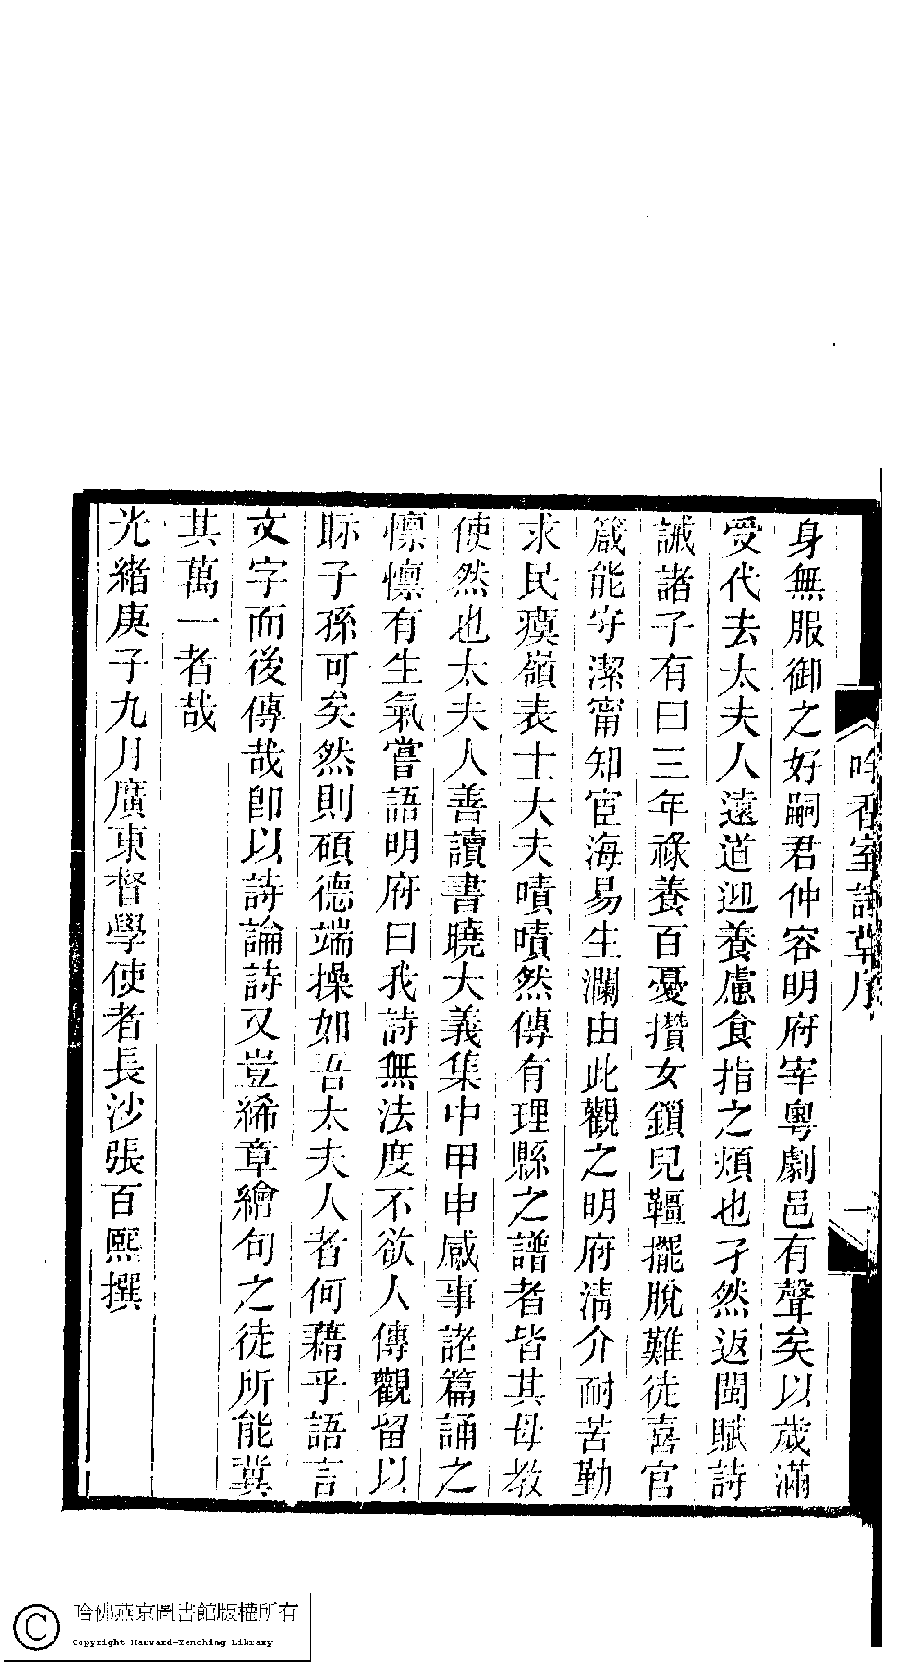 吟香室詩草序
一
身無服御之好嗣君仲容明府宰粵劇邑有聲矣以歲滿
受代去太夫人遠道迎養慮食指之煩也孑然返閩賦詩
誡諸子有曰三年祿養百憂攢女鎖兒韁擺脫難徒喜官
箴能守潔甯知宦海易生瀾由此觀之明府清介耐苦勤
求民瘼嶺表士大夫嘖嘖然傳有理縣之譜者皆其母教
使然也太夫人善讀書曉大義集中甲申感事諸篇誦之
懍懍有生氣嘗語明府曰我詩無法度不欲人傳觀留以
眎子孫可矣然則碩德端操如吾太夫人者何藉乎語言
文字而後傳哉卽以詩論詩又豈絺章繪句之徒所能冀
其萬一者哉
光緒庚子九月廣東督學使者長沙張百熙撰
哈佛燕京圖書館版權所有
Copyright Harvard-Yenching Library